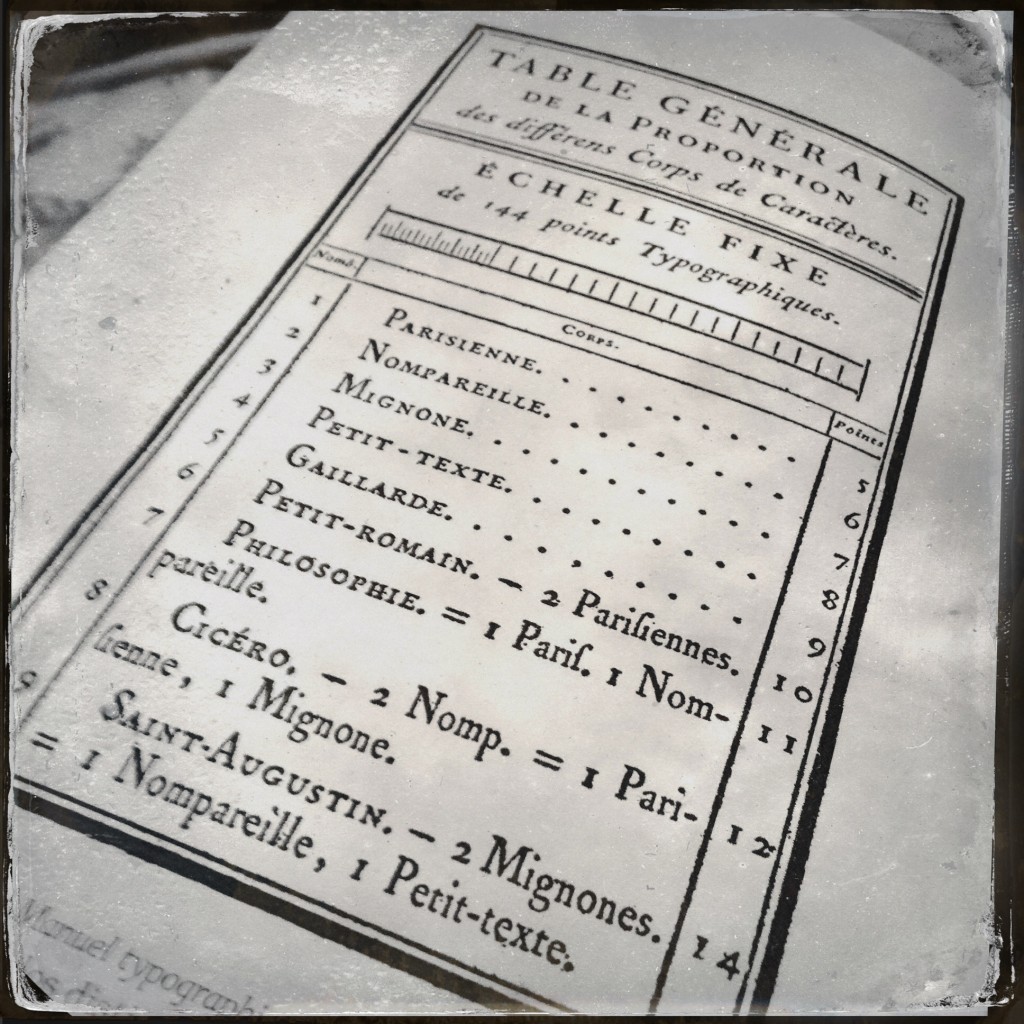 TABLE GÉNÉRALE
DE LA PROPORTION
des différens Corps de Caractères.
ÉCHELLE FIXE
de 144 points Typographiques.
Nomb. Corps. Points
1 PARISIENNE. . . . . . . . 5
2 NOMPAREILLE. . . . . . . 6
3 MIGNONE. . . . . . . . . 7
4 PETIT-TEXTE. . . . . . . 8
5 GAILLARDE. . . . . . . . 9
6 PETIT-ROMAIN. — 2 Pariſiennes. 10
7 PHILOSOPHIE. = 1 Pariſ. 1 Nom- 11
pareille.
8 CICÉRO, — 2 Nomp. = 1 Pari- 12
ſienne, 1 Mignone.
9 SAINT-AUGUSTIN. — 2 Mignones. 14
= 1 Nompareille, 1 Petit-texte.
Manuel